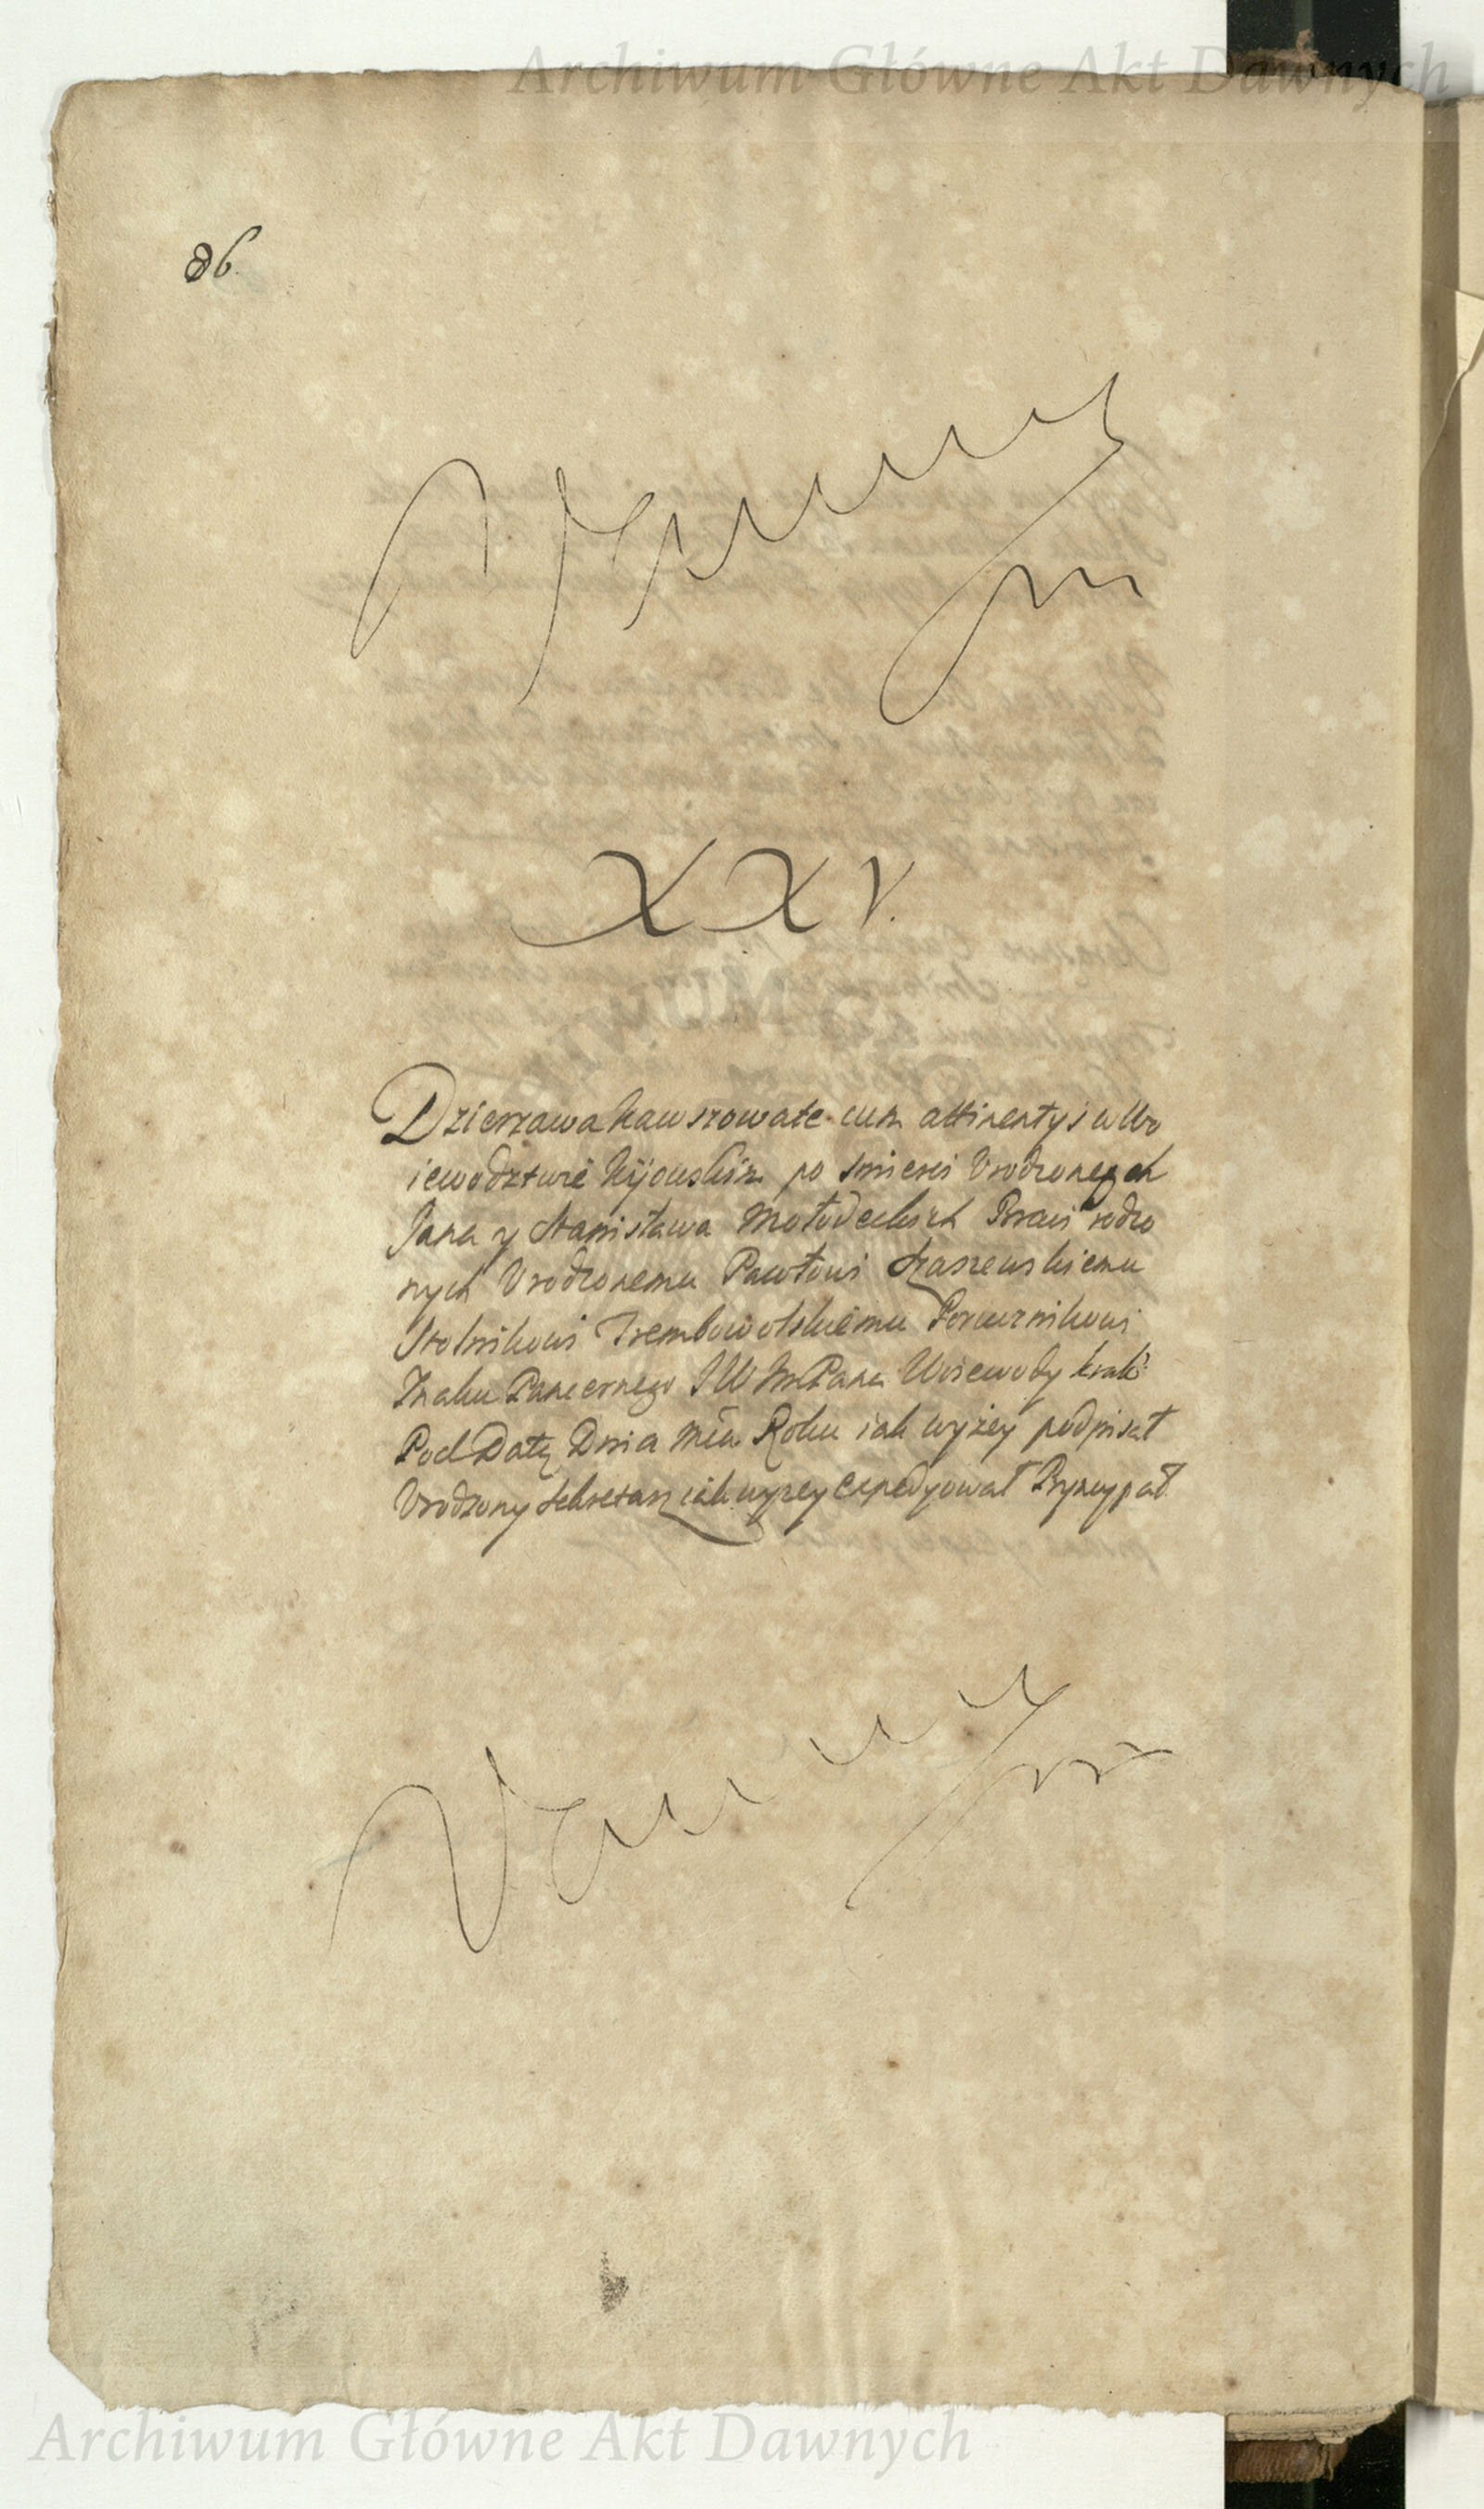 Archiwum Główne Akt Dawnych
86
XXV.
Dzierzawa Kawszowate cum attinentys w Wo
iewodztwie Kijowskim po smierci Urodzonych
Jana y Stanisława Mołodeckich Braci rodzo
nych Urodzonemu Pawłowi Łaszewskiemu
Stolnikowi Trembowolskiemu Porucznikowi
Znaku Pancernego JW JmPana Woiewody krak:
Pod Datą Dnia Mca Roku iak wyżey podpisał
Urodzony Sekretarz iak wyzey expedyował Pryncypał
Archiwum Główne Akt Dawnych